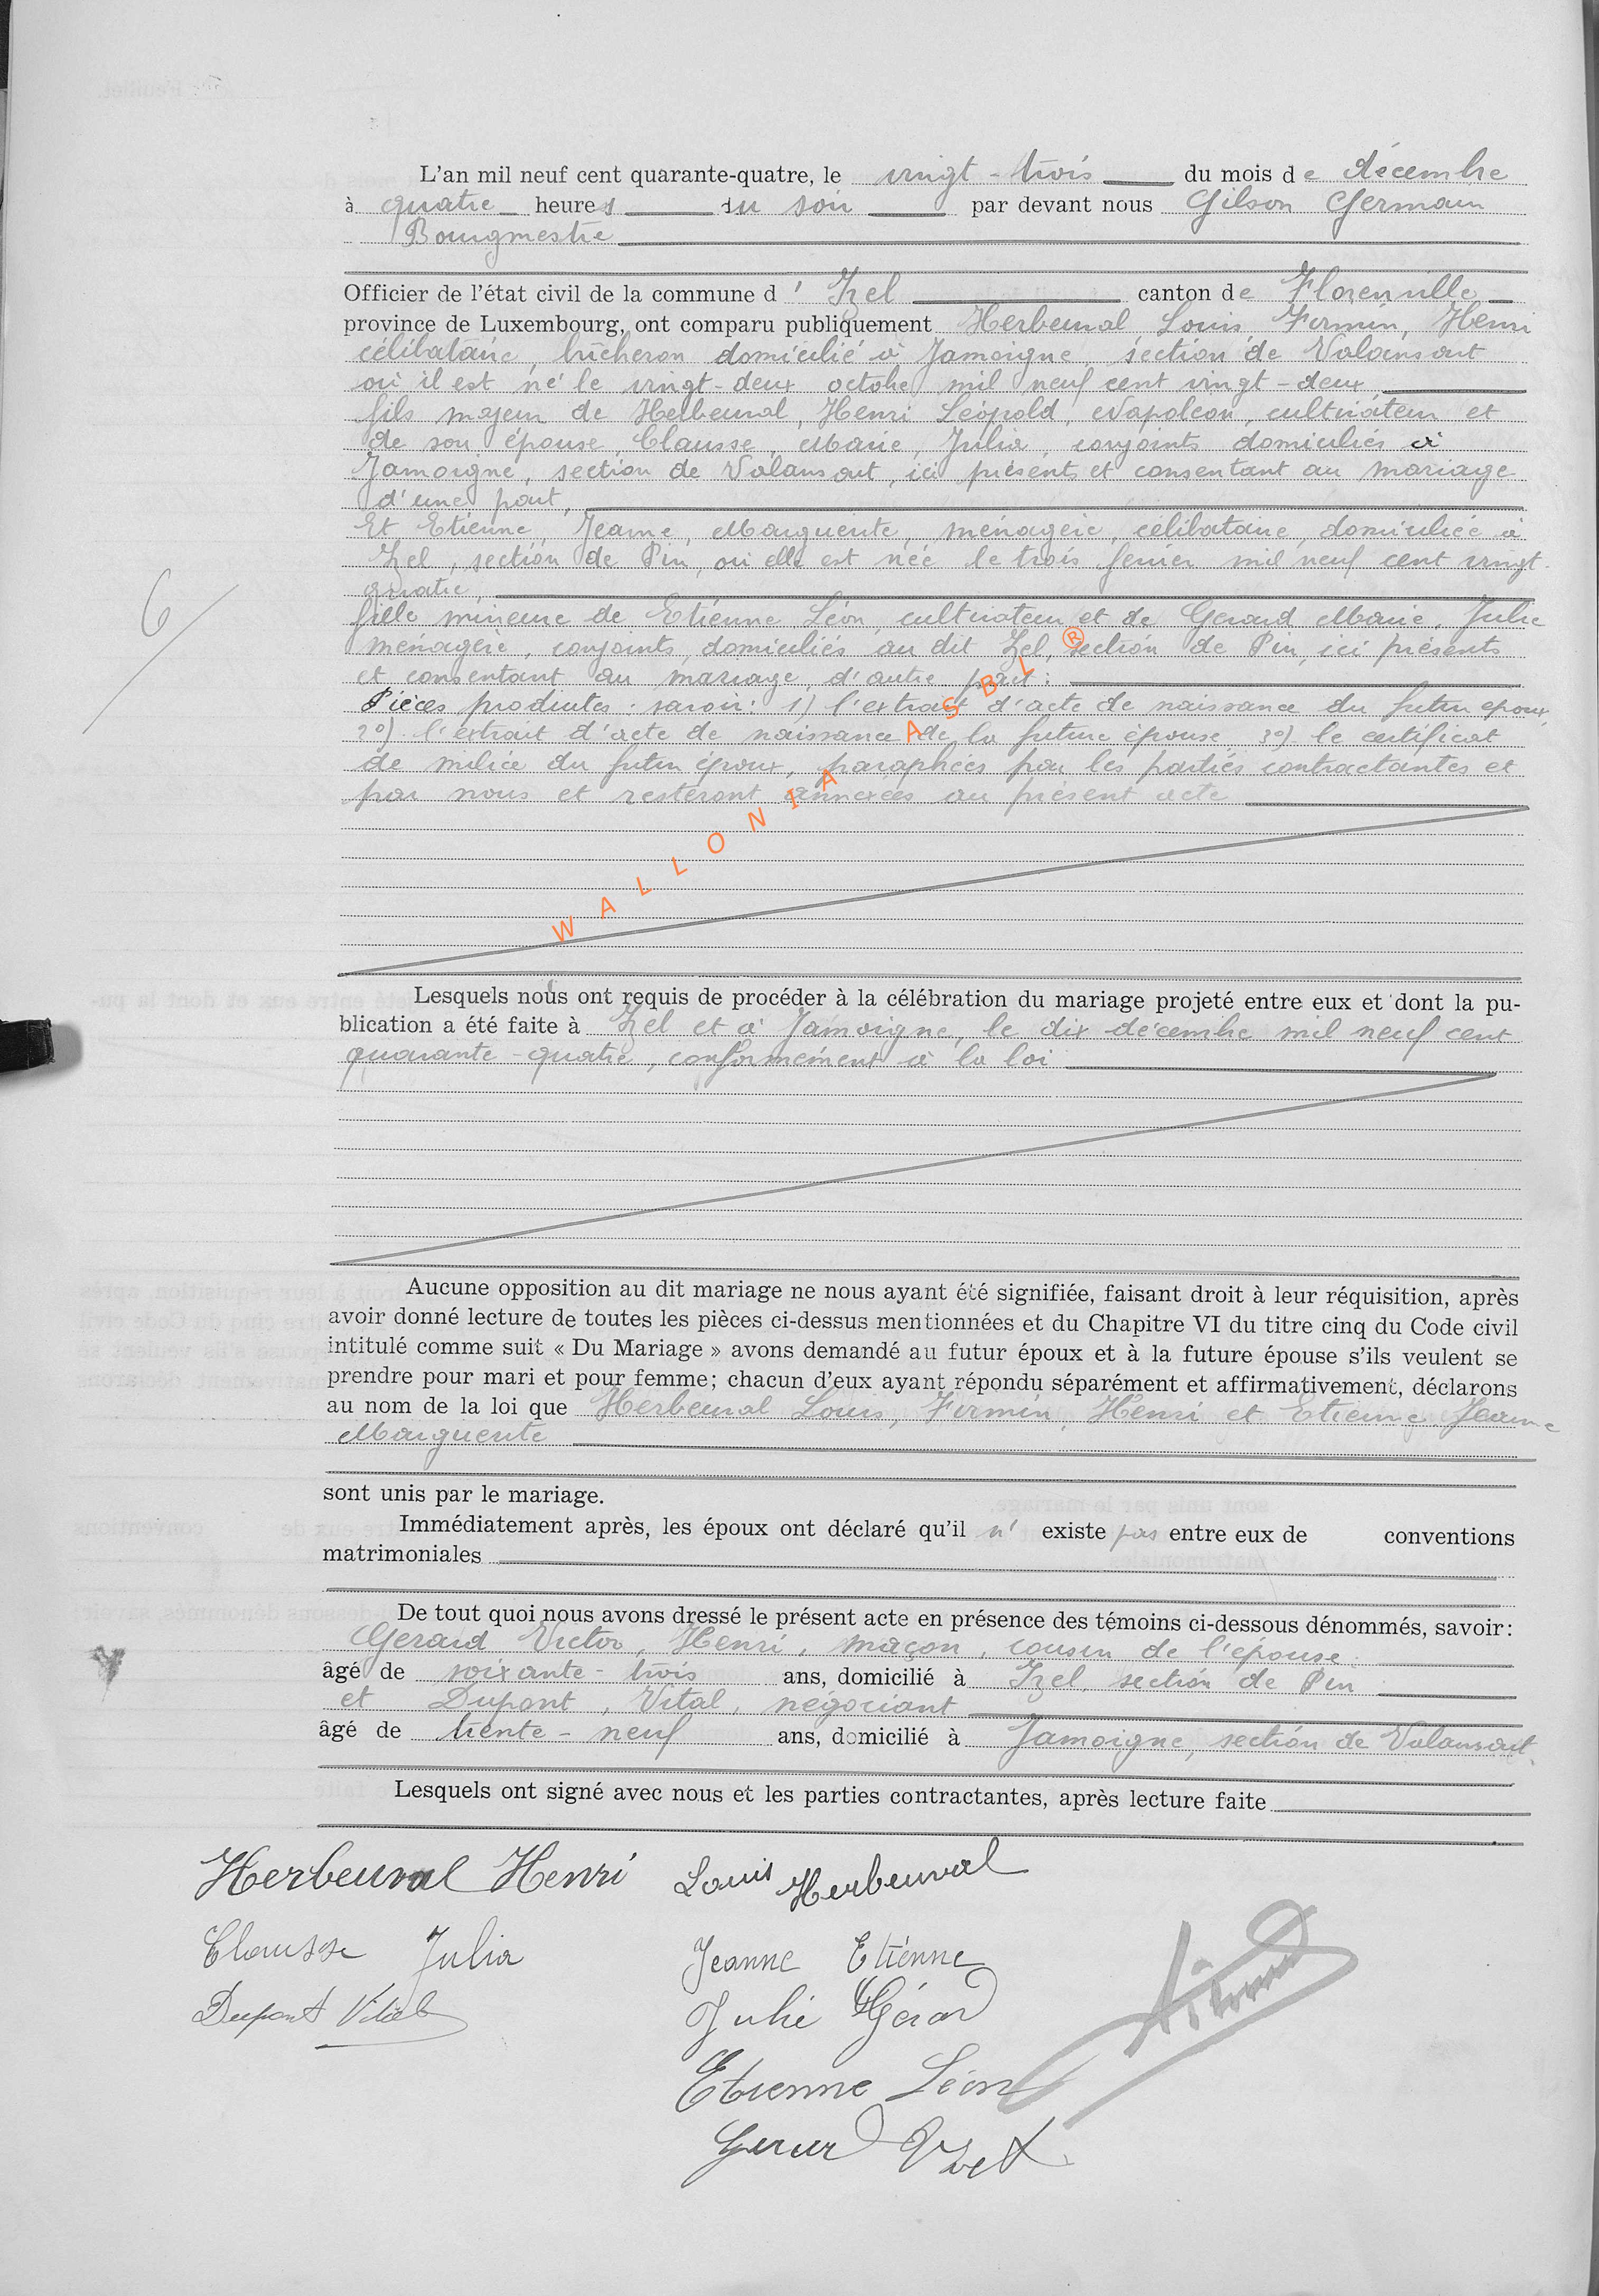 L'an mil neuf cent quarante-quatre, le vingt-trois du mois de décembre
à quatre heures du soir par devant nous Gilson Germain
Bourgmestre
Officier de l'état civil de la commune d' Izel canton de Florenville
province de Luxembourg, ont comparu publiquement Herbeuval Louis Firmin, Henri
célibataire, bûcheron domicilié à Jamoigne section de Valansart
où il est né le vingt-deux octobre mil neuf cent vingt-deux
fils majeur de Herbeuval, Henri Léopold, Napoléon, cultivateur et
de son épouse Clausse, Marie, Julia, conjoints domiciliés à
Jamoigne, section de Valansart, ici présents et consentant au mariage
d'une part,
Et Etienne, Jeanne, Marguerite, ménagère, célibataire, domiciliée à
Izel, section de Pin, où elle est née le trois février mil neuf cent vingt-
quatre,
fille mineure de Etienne Léon, cultivateur et de Gerard Marie, Julie
ménagère, conjoints, domiciliés au dit Izel, section de Pin, ici présents
et consentant au mariage, d'autre part :
6
Pièces produites : savoir : 1) l'extrait d'acte de naissance du futur époux,
2°) l'extrait d'acte de naissance de la future épouse, 3°) le certificat
de milice du futur époux, paraphées par les parties contractantes et
par nous et resteront annexées au présent acte
WALLONIA ASBL ®
Lesquels nous ont requis de procéder à la célébration du mariage projeté entre eux et dont la pu-
blication a été faite à Izel et à Jamoigne, le dix décembre mil neuf cent
quarante-quatre, conformément à la loi
Aucune opposition au dit mariage ne nous ayant été signifiée, faisant droit à leur réquisition, après
avoir donné lecture de toutes les pièces ci-dessus mentionnées et du Chapitre VI du titre cinq du Code civil
intitulé comme suit « Du Mariage » avons demandé au futur époux et à la future épouse s'ils veulent se
prendre pour mari et pour femme; chacun d'eux ayant répondu séparément et affirmativement, déclarons
au nom de la loi que Herbeuval Louis, Firmin, Henri et Etienne Jeanne
Marguerite
sont unis par le mariage.
Immédiatement après, les époux ont déclaré qu'il n' existe pas entre eux de conventions
matrimoniales
De tout quoi nous avons dressé le présent acte en présence des témoins ci-dessous dénommés, savoir:
Gerard Victor, Henri, maçon, cousin de l'épouse
âgé de soixante-trois ans, domicilié à Izel, section de Pin
et Dupont, Vital, négociant
âgé de trente-neuf ans, domicilié à Jamoigne, section de Valansart.
Lesquels ont signé avec nous et les parties contractantes, après lecture faite
Herbeuval Henri Louis Herbeuval
Clausse Julia Jeanne Etienne
Dupont Vital Julie Gérard
Etienne Léon